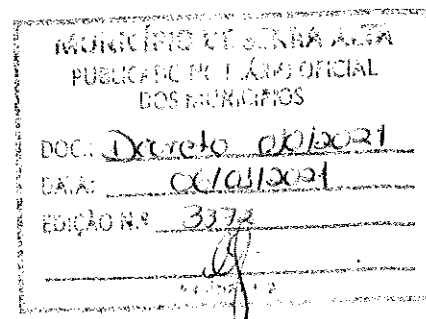 MUNICÍPIO DE SERRA ALTA
PUBLICADO NO DIÁRIO OFICIAL
DOS MUNICÍPIOS
DOC.: Decreto /2021
DATA: /2021
EDIÇÃO N.º 3372